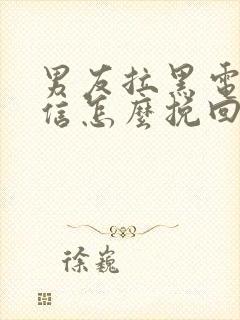 男友拉黑電
信怎麼挽回
徐巍